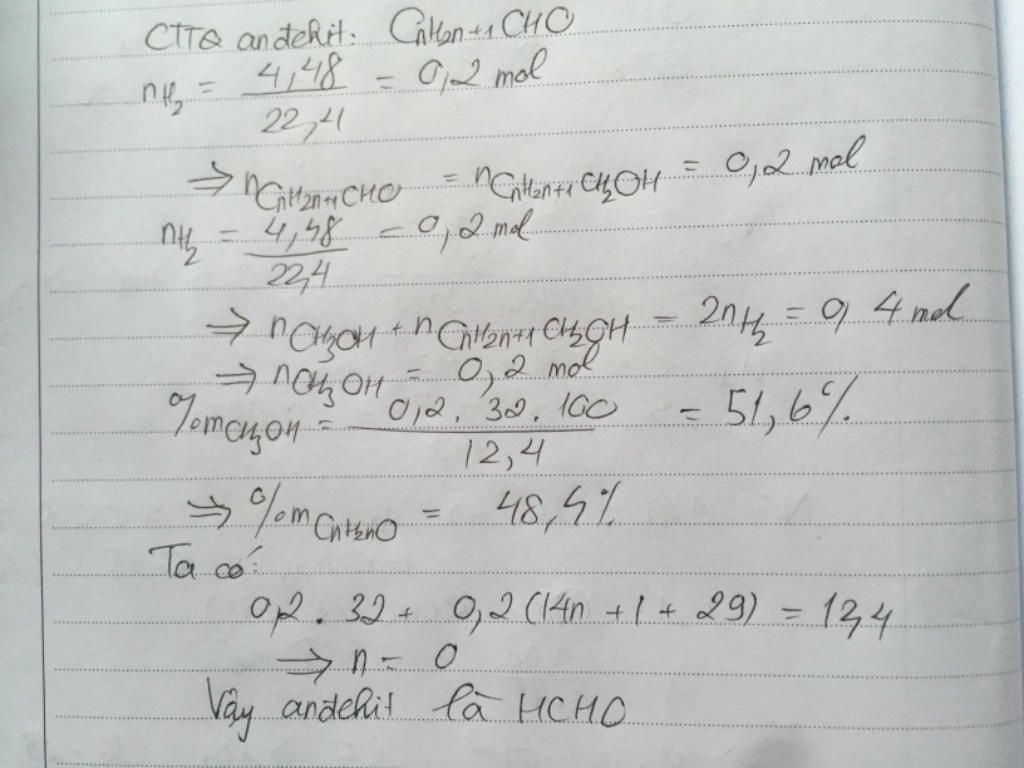 CTTQ anđehit: CnH2n+1CHO
nH2 = 4,48 / 22,4 = 0,2 mol
⇒ nCnH2n+1CHO = nCnH2n+1CH2OH = 0,2 mol
nH2 = 4,48 / 22,4 = 0,2 mol
⇒ nCH3OH + nCnH2n+1CH2OH = 2nH2 = 0,4 mol
⇒ nCH3OH = 0,2 mol
%mCH3OH = 0,2.32.100 / 12,4 = 51,6%
⇒ %mCnH2nO = 48,4%
Ta có:
0,2.32 + 0,2(14n+1+29) = 12,4
⇒ n = 0
Vậy anđehit là HCHO